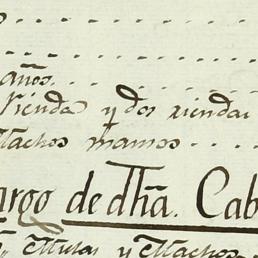 años
rienda y dos riendas
Machos mansos
argo de dħa. Cab
Mulas y Machos